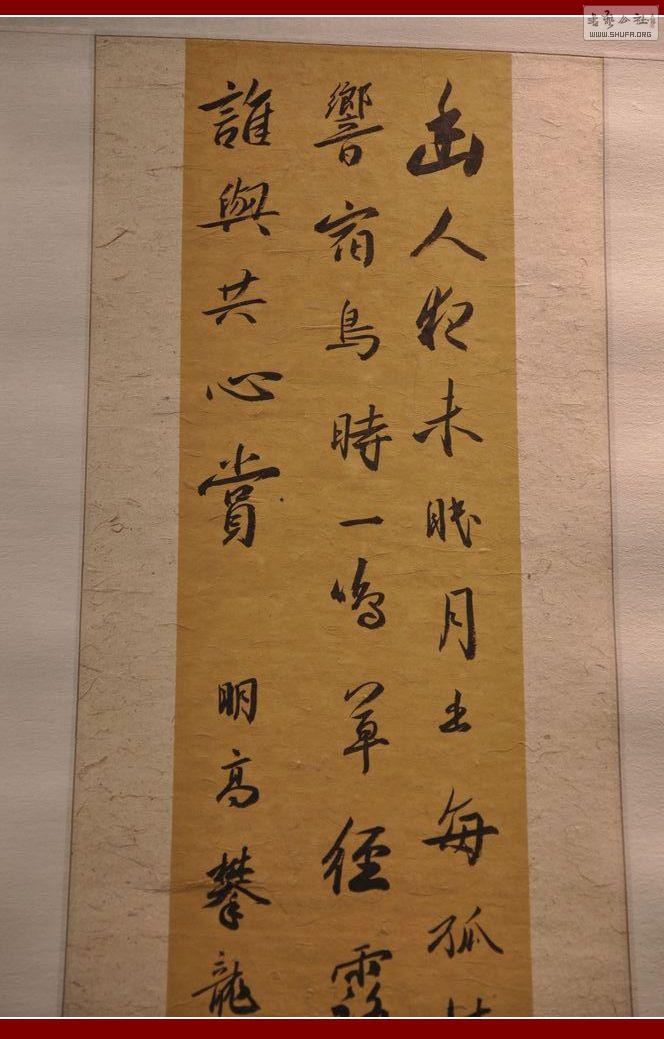 幽人夜未眠月出每孤
響宿鳥時一鳴草徑露
誰與共心賞
明高攀龍
WWW.SHUFA.ORG